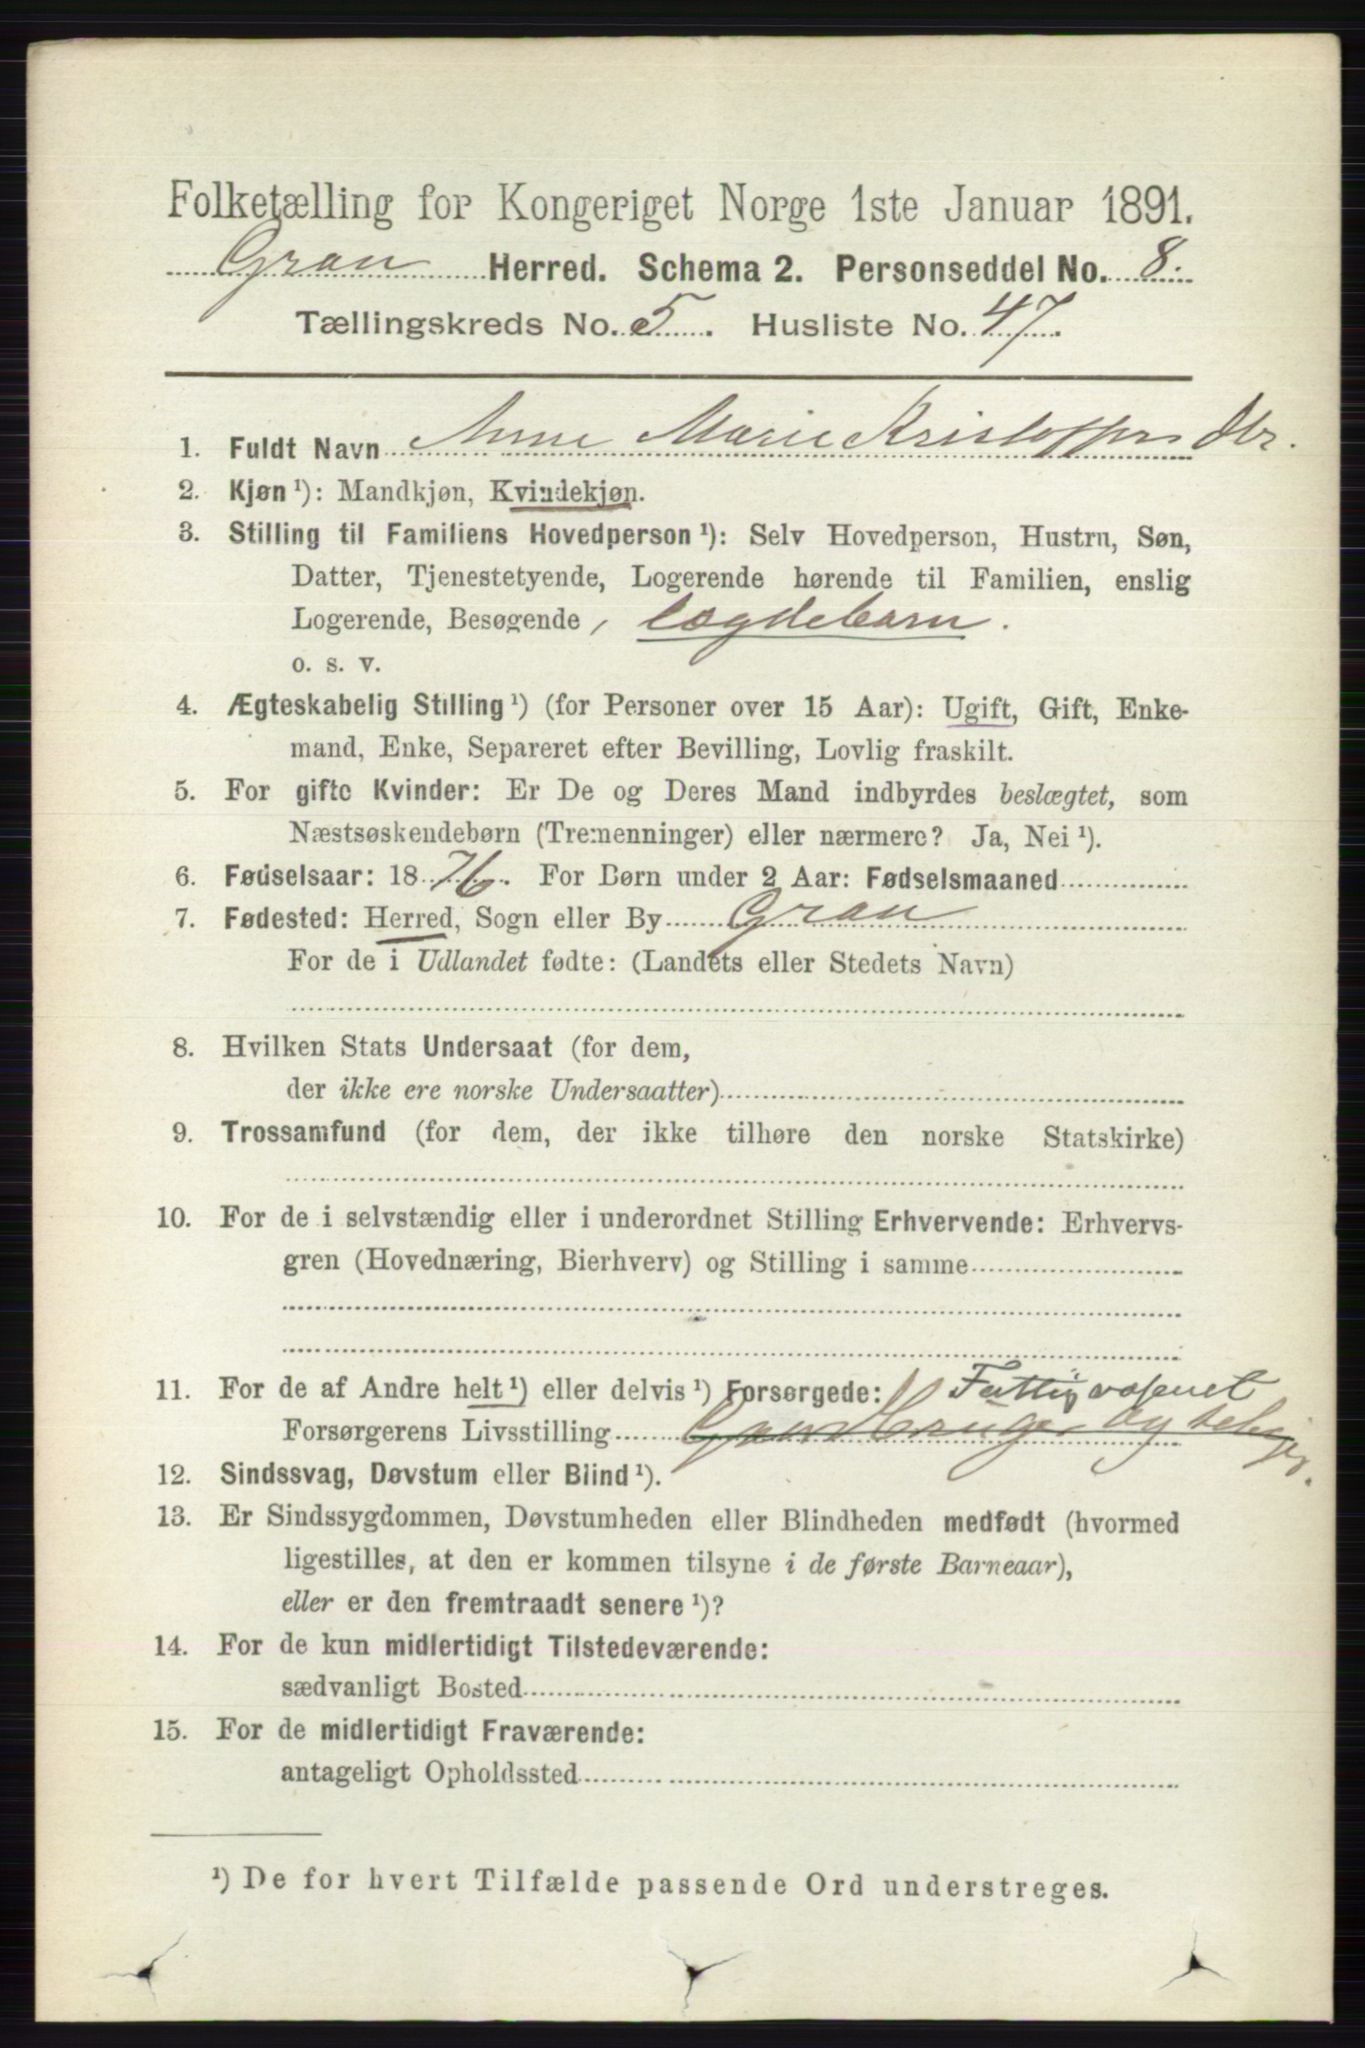 Folketælling for Kongeriget Norge 1ste Januar 1891.
Gran Herred. Schema 2. Personseddel No. 8.
Tællingskreds No. 5. Husliste No. 47.
1. Fuldt Navn Anne Marie Kristoffers Dtr.
2. Kjøn ¹): Mandkjøn, Kvindekjøn.
3. Stilling til Familiens Hovedperson ¹): Selv Hovedperson, Hustru, Søn,
Datter, Tjenestetyende, Logerende hørende til Familien, enslig
Logerende, Besøgende, lægdebarn.
o. s. v.
4. Ægteskabelig Stilling ¹) (for Personer over 15 Aar): Ugift, Gift, Enke-
mand, Enke, Separeret efter Bevilling, Lovlig fraskilt.
5. For gifte Kvinder: Er De og Deres Mand indbyrdes beslægtet, som
Næstsøskendebørn (Tremenninger) eller nærmere? Ja, Nei ¹).
6. Fødselsaar: 1876. For Børn under 2 Aar: Fødselsmaaned
7. Fødested: Herred, Sogn eller By Gran
For de i Udlandet fødte: (Landets eller Stedets Navn)
8. Hvilken Stats Undersaat (for dem,
der ikke ere norske Undersaatter)
9. Trossamfund (for dem, der ikke tilhøre den norske Statskirke)
10. For de i selvstændig eller i underordnet Stilling Erhvervende: Erhvervs-
gren (Hovednæring, Bierhverv) og Stilling i samme
11. For de af Andre helt ¹) eller delvis ¹) Forsørgede: Fattigvæsenet
Forsørgerens Livsstilling Gaardbruger og selvejer.
12. Sindssvag, Døvstum eller Blind ¹).
13. Er Sindssygdommen, Døvstumheden eller Blindheden medfødt (hvormed
ligestilles, at den er kommen tilsyne i de første Barneaar),
eller er den fremtraadt senere ¹)?
14. For de kun midlertidigt Tilstedeværende:
sædvanligt Bosted
15. For de midlertidigt Fraværende:
antageligt Opholdssted
¹) De for hvert Tilfælde passende Ord understreges.